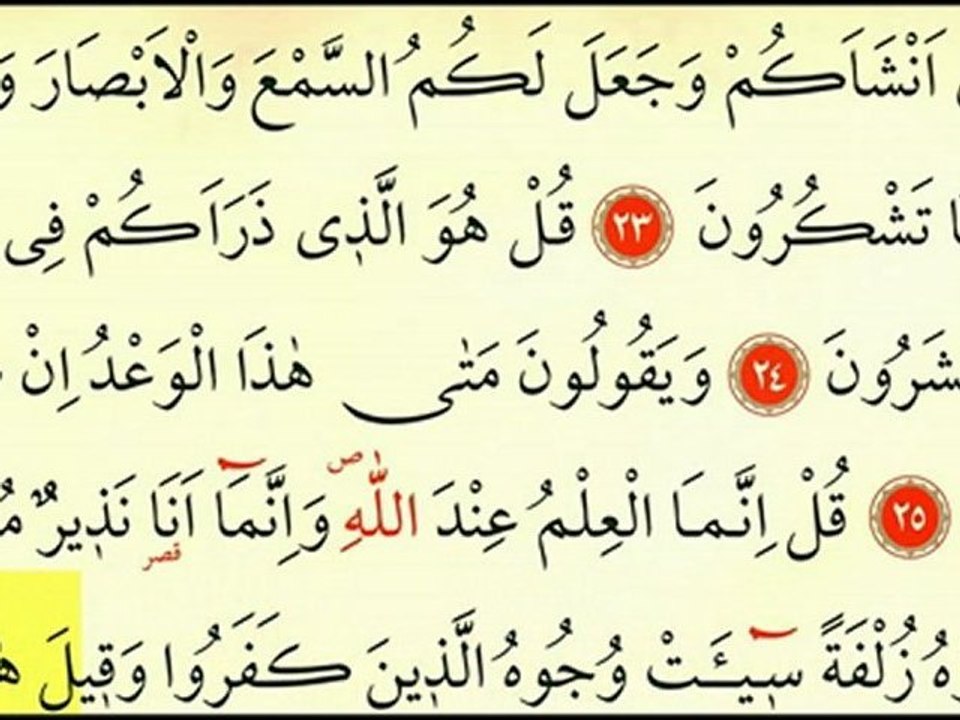 اَنْشَاَكُمْ وَجَعَلَ لَكُمُ السَّمْعَ وَالْاَبْصَارَ وَ
تَشْكُرُونَ ٢٣ قُلْ هُوَ الَّذِى ذَرَاَكُمْ فِى
شَرُونَ ٢٤ وَيَقُولُونَ مَتٰى هٰذَا الْوَعْدُ اِنْ
٢٥ قُلْ اِنَّمَا الْعِلْمُ عِنْدَ اللّٰهِ ص وَاِنَّمَٓا اَنَا قصر نَذِيرٌ مُ
هُ زُلْفَةً سِٓيـَٔتْ وُجُوهُ الَّذِينَ كَفَرُوا وَقِيلَ